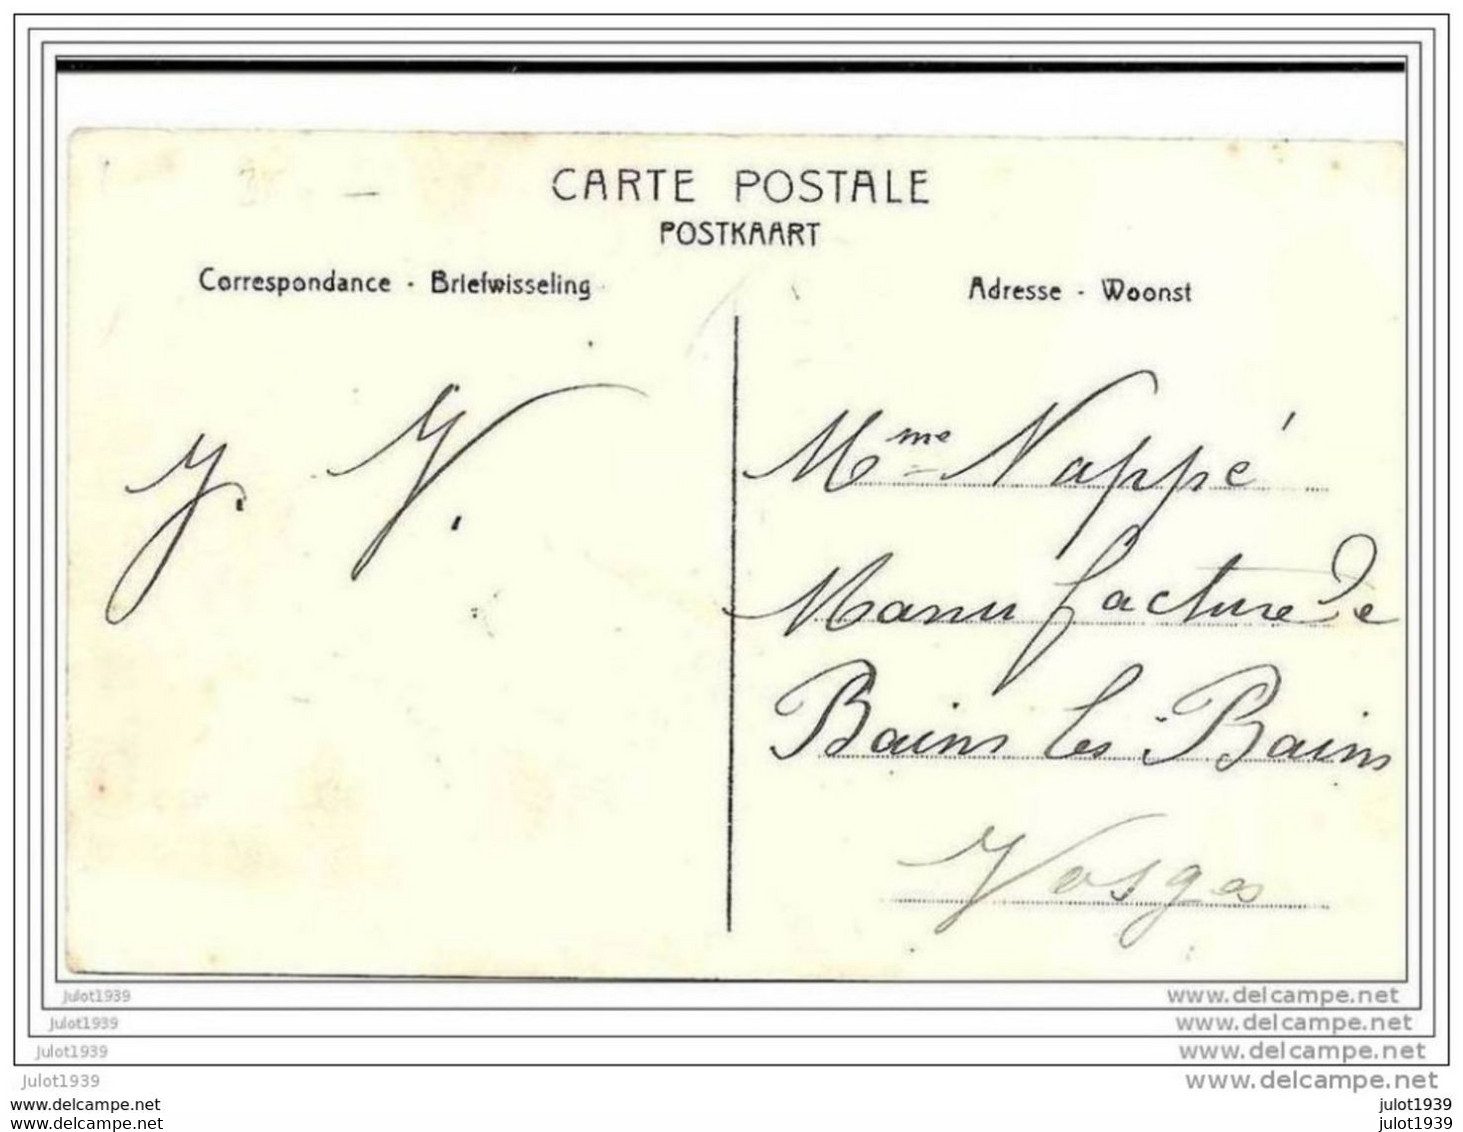 CARTE POSTALE
POSTKAART
Correspondance - Briefwisseling
Adresse - Woonst
J. V.
Mme Nappé
Manufacture de
Bains les Bains
Vosges
julot1939
www.delcampe.net
julot1939
www.delcampe.net
julot1939
www.delcampe.net
julot1939
www.delcampe.net
www.delcampe.net
julot1939
www.delcampe.net
julot1939